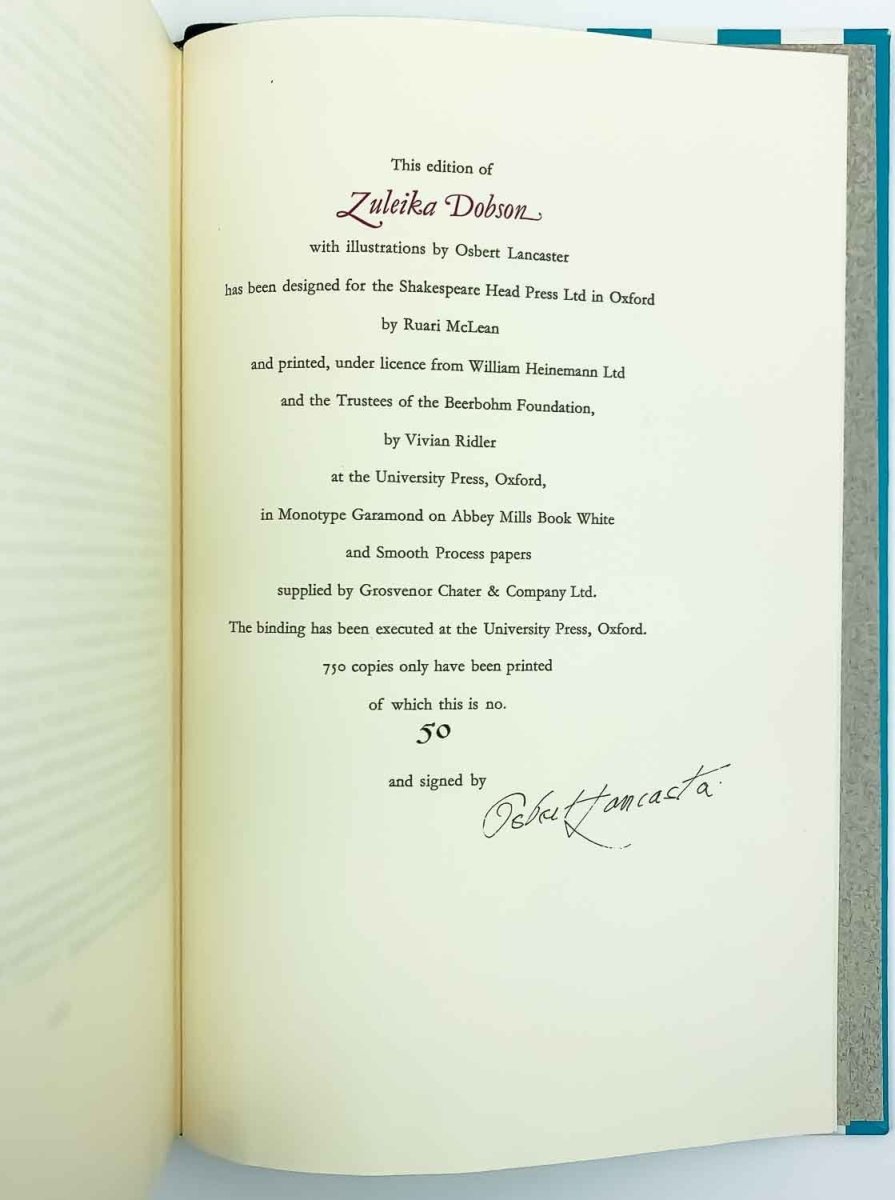 This edition of
Zuleika Dobson
with illustrations by Osbert Lancaster
has been designed for the Shakespeare Head Press Ltd in Oxford
by Ruari McLean
and printed, under licence from William Heinemann Ltd
and the Trustees of the Beerbohm Foundation,
by Vivian Ridler
at the University Press, Oxford,
in Monotype Garamond on Abbey Mills Book White
and Smooth Process papers
supplied by Grosvenor Chater & Company Ltd.
The binding has been executed at the University Press, Oxford.
750 copies only have been printed
of which this is no.
50
and signed by
Osbert Lancaster